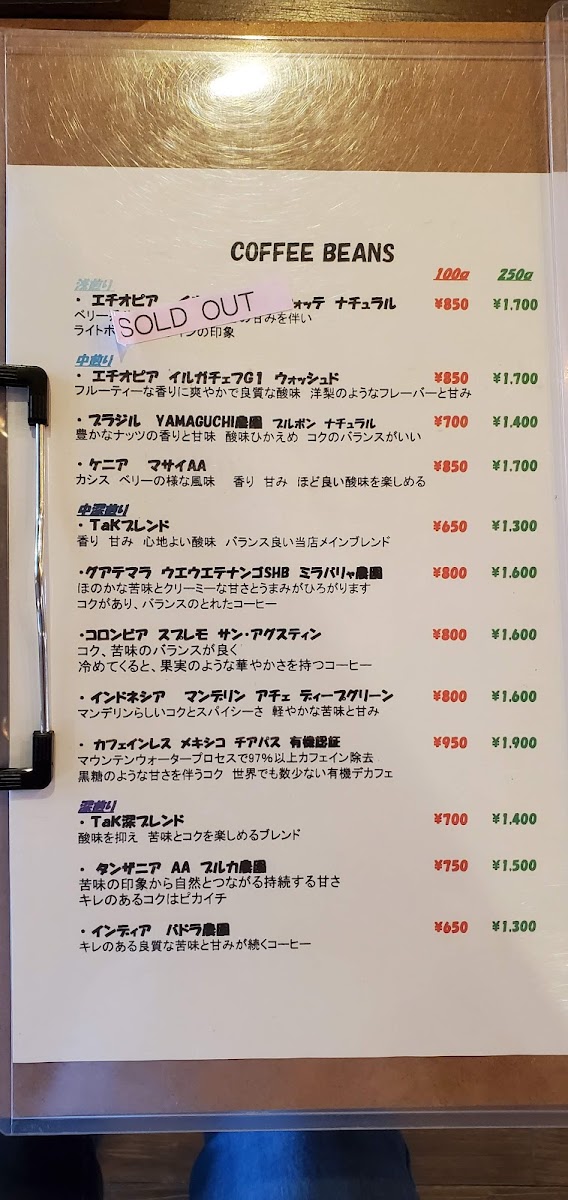 COFFEE BEANS
100g 250g
浅煎り
・ エチオピア ウォッテ ナチュラル ¥850 ¥1.700
SOLD OUT
ベリー の甘みを伴い
ライトボ インの印象
中煎り
・ エチオピア イルガチェフG1 ウォッシュド ¥850 ¥1.700
フルーティーな香りに爽やかで良質な酸味 洋梨のようなフレーバーと甘み
・ ブラジル YAMAGUCHI農園 ブルボン ナチュラル ¥700 ¥1.400
豊かなナッツの香りと甘味 酸味ひかえめ コクのバランスがいい
・ ケニア マサイAA ¥850 ¥1.700
カシス ベリーの様な風味 香り 甘み ほど良い酸味を楽しめる
中深煎り
・ TaKブレンド ¥650 ¥1.300
香り 甘み 心地よい酸味 バランス良い当店メインブレンド
・グアテマラ ウエウエテナンゴSHB ミラバリャ農園 ¥800 ¥1.600
ほのかな苦味とクリーミーな甘さとうまみがひろがります
コクがあり、バランスのとれたコーヒー
・コロンビア スプレモ サン・アグスティン ¥800 ¥1.600
コク、苦味のバランスが良く
冷めてくると、果実のような華やかさを持つコーヒー
・ インドネシア マンデリン アチェ ディープグリーン ¥800 ¥1.600
マンデリンらしいコクとスパイシーさ 軽やかな苦味と甘み
・ カフェインレス メキシコ チアパス 有機認証 ¥950 ¥1.900
マウンテンウォータープロセスで97％以上カフェイン除去
黒糖のような甘さを伴うコク 世界でも数少ない有機デカフェ
深煎り
・ TaK深ブレンド ¥700 ¥1.400
酸味を抑え 苦味とコクを楽しめるブレンド
・ タンザニア AA ブルカ農園 ¥750 ¥1.500
苦味の印象から自然とつながる持続する甘さ
キレのあるコクはピカイチ
・ インディア バドラ農園 ¥650 ¥1.300
キレのある良質な苦味と甘みが続くコーヒー